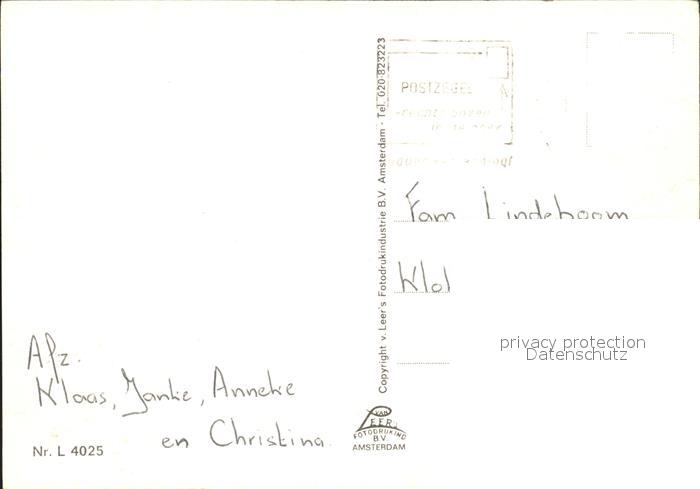 Afz.
Klaas, Janke, Anneke
en Christina.
Nr. L 4025
Copyright v. Leer's Fotodrukindustrie B.V. Amsterdam - Tel. 020-823223
VAN
LEER'S
FOTODRUKIND
B.V.
AMSTERDAM
POSTZEGEL
rechts boven
Fam Lindeboom
Klol
privacy protection
Datenschutz